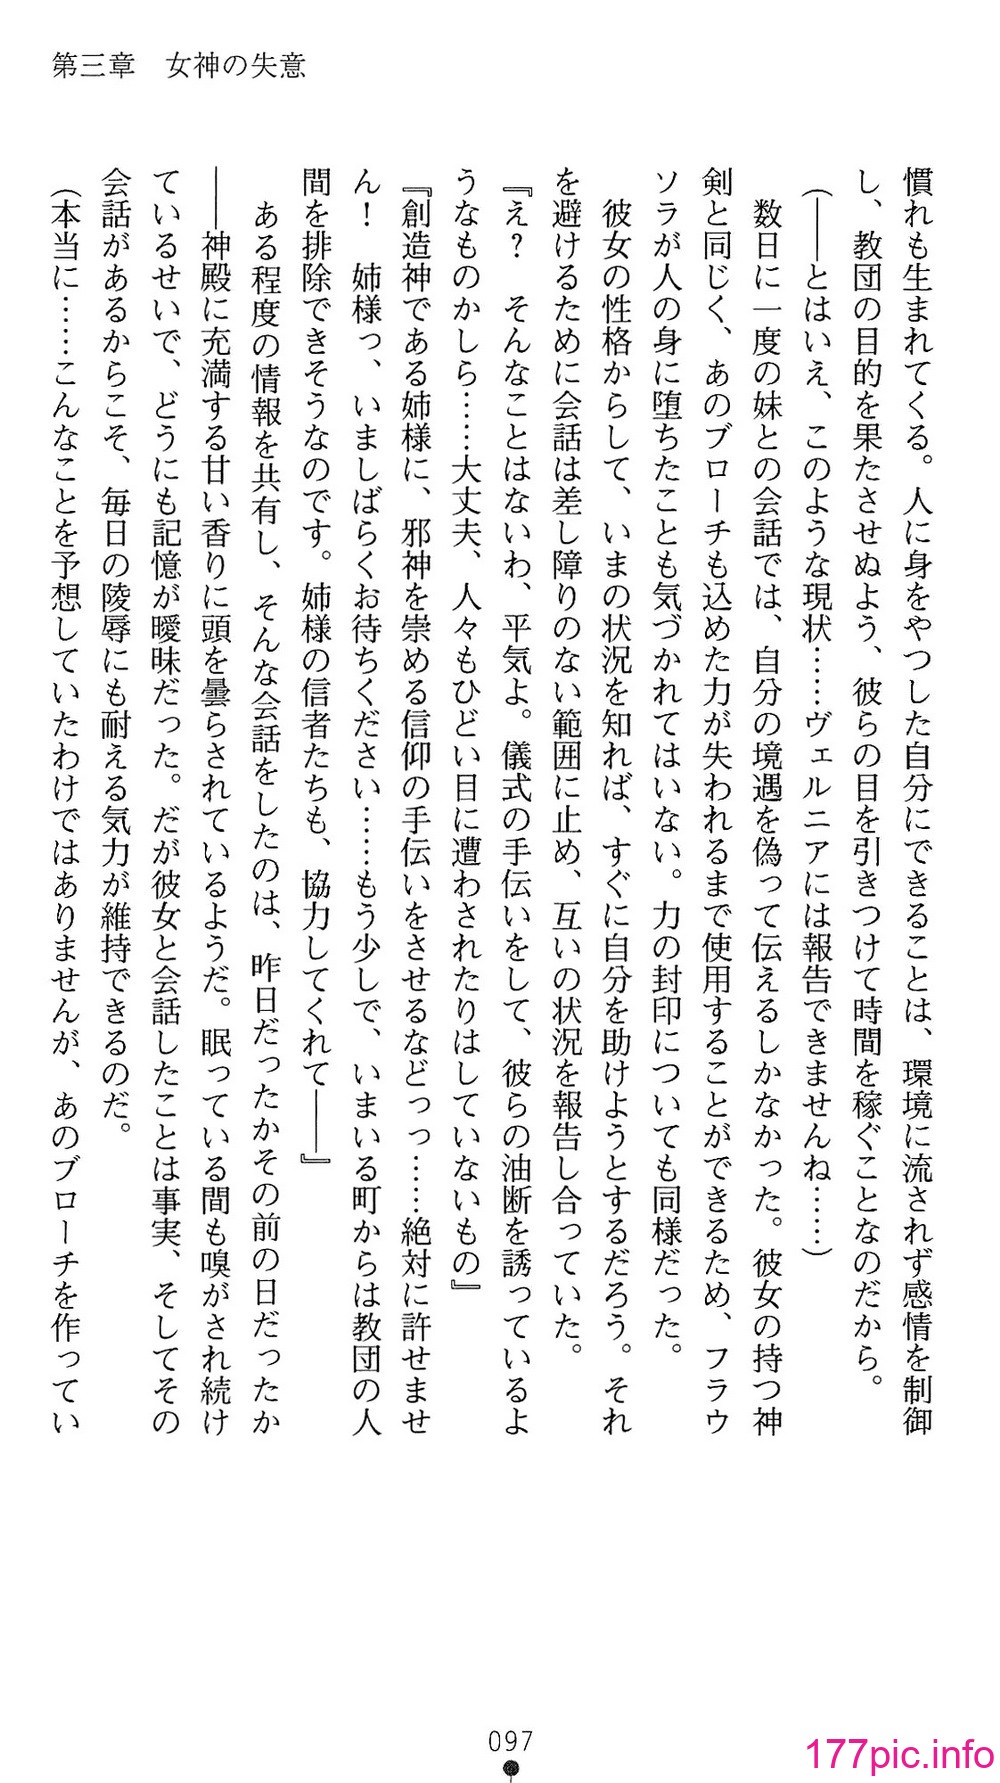 第三章　女神の失意
慣れも生まれてくる。人に身をやつした自分にできることは、環境に流されず感情を制御
し、教団の目的を果たさせぬよう、彼らの目を引きつけて時間を稼ぐことなのだから。
（――とはいえ、このような現状……ヴェルニアには報告できませんね……）
　数日に一度の妹との会話では、自分の境遇を偽って伝えるしかなかった。彼女の持つ神
剣と同じく、あのブローチも込めた力が失われるまで使用することができるため、フラウ
ソラが人の身に堕ちたことも気づかれてはいない。力の封印についても同様だった。
　彼女の性格からして、いまの状況を知れば、すぐに自分を助けようとするだろう。それ
を避けるために会話は差し障りのない範囲に止め、互いの状況を報告し合っていた。
『え？　そんなことはないわ、平気よ。儀式の手伝いをして、彼らの油断を誘っているよ
うなものかしら……大丈夫、人々もひどい目に遭わされたりはしていないもの』
『創造神である姉様に、邪神を崇める信仰の手伝いをさせるなどっっ……絶対に許せませ
ん！　姉様っ、いましばらくお待ちください……もう少しで、いまいる町からは教団の人
間を排除できそうなのです。姉様の信者たちも、協力してくれて――』
　ある程度の情報を共有し、そんな会話をしたのは、昨日だったかその前の日だったか
――神殿に充満する甘い香りに頭を曇らされているようだ。眠っている間も嗅がされ続け
ているせいで、どうにも記憶が曖昧だった。だが彼女と会話したことは事実、そしてその
会話があるからこそ、毎日の陵辱にも耐える気力が維持できるのだ。
（本当に……こんなことを予想していたわけではありませんが、あのブローチを作ってい
097
177pic.info